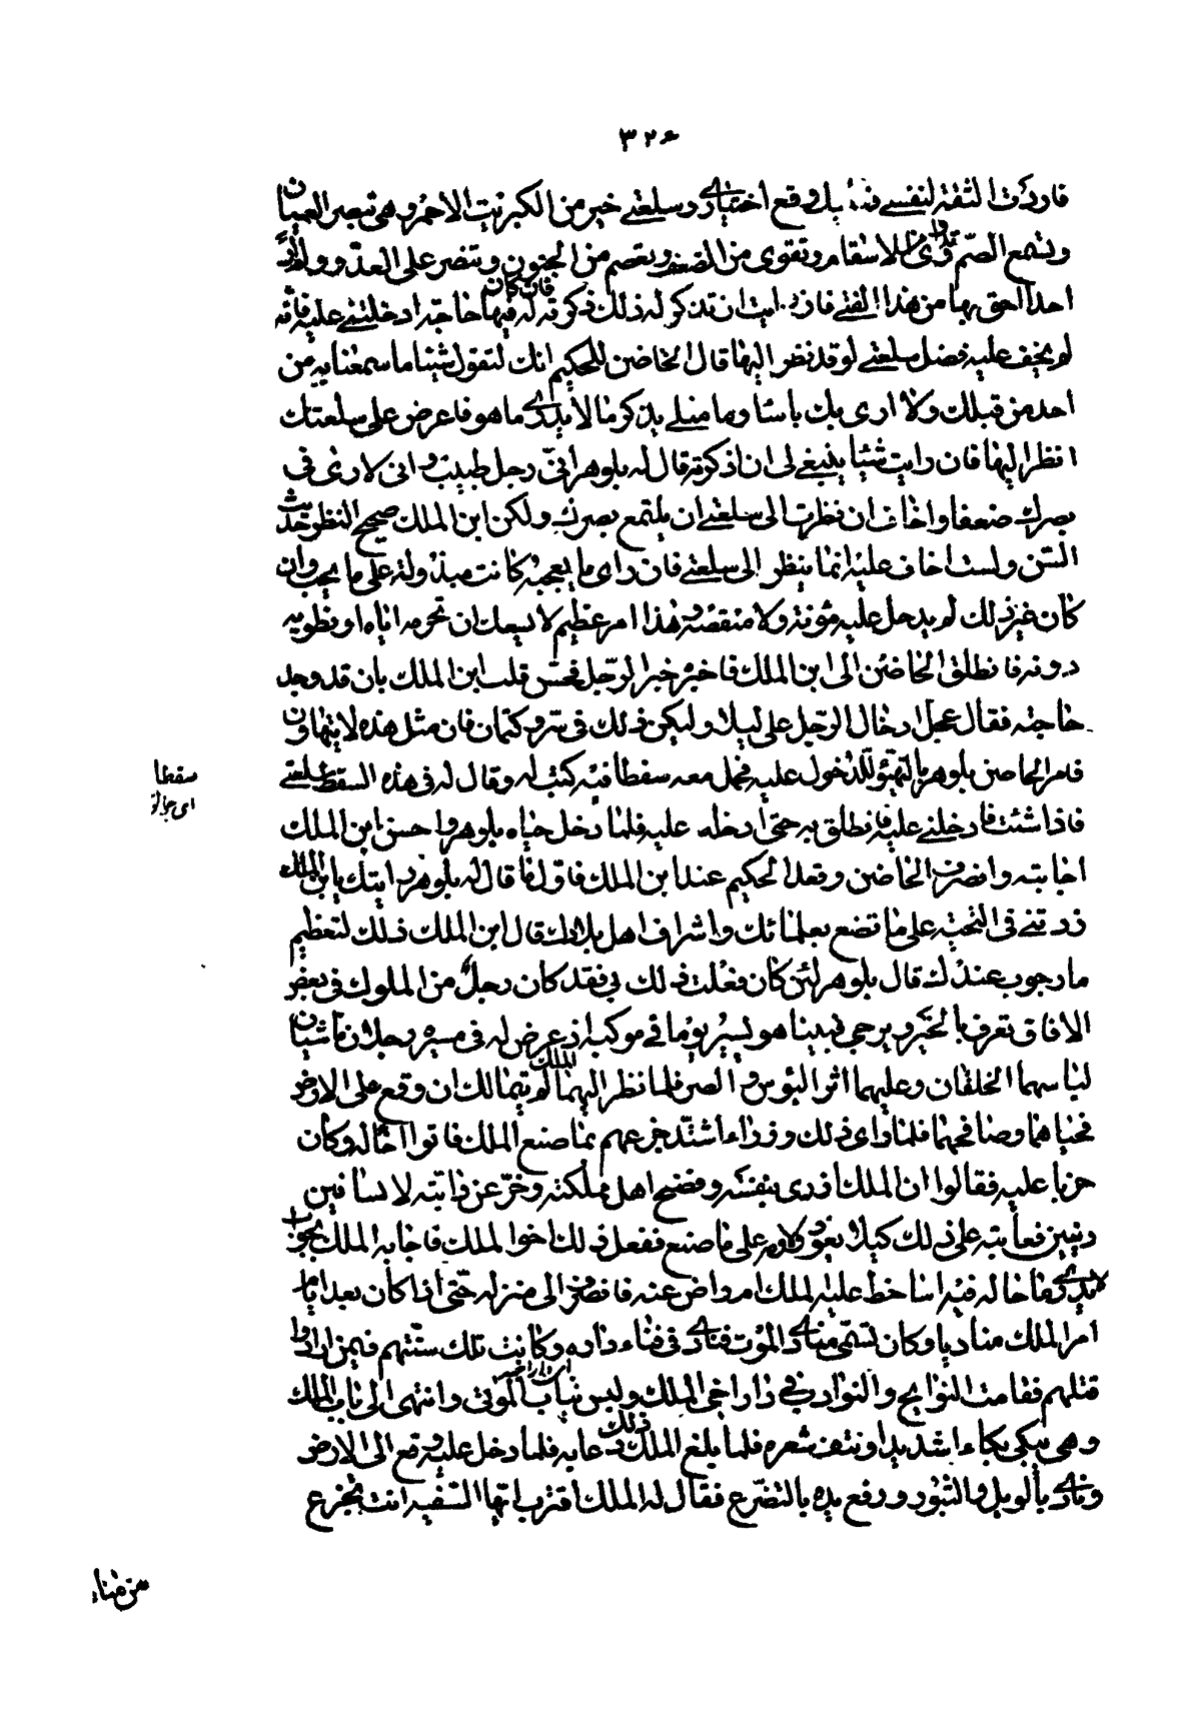 ٣٢٤
فاردت الثقة لنفسي منه بل وقع اختياري وسلعتي خير من الكبريت الاحمر وهي تبصر العميان
وتسمع الصم وتداوي من الاسقام وتقوي من الضعف وتعصم من الجنون وتنصر على العدو ولم ار
احدا احق بها من هذا الفتى فان رايت ان تذكر له ذلك ذكرته له فان كان فيها حاجة ادخلتني عليه فانه
لم يخف عليه فضل سلعتي لو قد نظر اليها قال الحاضن للحكيم انك لتقول شيئا ما سمعنا به من
احد من قبلك ولا ارى بك باسا وما مثلي يذكر ما لا يدري ما هو فاعرض علي سلعتك
انظر اليها فان رايت شيئا ينبغي لي ان اذكره قال له بلوهر اني رجل طبيب واني لارى في
بصرك ضعفا واخاف ان نظرت الى سلعتي ان يلتمع بصرك ولكن ابن الملك صحيح النظر حديث
السن ولست اخاف عليه انما ينظر الى سلعتي فان راى ما يعجبه كانت مبذولة على ما يحب وان
كان غير ذلك لم يدخل عليه مؤنة ولا منقصة وهذا امر عظيم لا يسعك ان تحرمه اياه او تطويه
دونه فانطلق الحاضن الى ابن الملك فاخبره خبر الرجل فحس قلب ابن الملك بان قد وجد
حاجته فقال عجل ادخال الرجل علي ليلا وليكن ذلك في سر وكتمان فان مثل هذه لا يتهاون
فامر الحاضن بلوهر بالتهيؤ للدخول عليه فحمل معه سفطا فيه كتب له وقال له في هذه السفط سلعتي
فاذا شئت فادخلني عليه فانطلق به حتى ادخله عليه فلما دخل حياه بلوهر واحسن ابن الملك
اجابته وانصرف الحاضن وقعد الحكيم عند ابن الملك فاول ما قال له بلوهر رايتك يا ابن الملك
زدتني في التحية على ما تصنع بعلمائك واشراف اهل بلادك قال ابن الملك ذلك لتعظيم
ما رجوت عندك قال بلوهر لئن كان فعلت ذلك بي فقد كان رجل من الملوك في بعض
الافاق يعرف بالخير ويرجى فبينا هو يسير يوما في موكبه اذ عرض له في مسيره رجلان ماشيان
لباسهما الخلقان وعليهما اثر البؤس والضر فلما نظر اليهما الملك لم يتمالك ان وقع على الارض
فحياهما وصافحهما فلما راى ذلك وزراءه اشتد جزعهم بما صنع الملك فاتوا اخا له وكان
جريا عليه فقالوا ان الملك ازرى بنفسه وفضح اهل مملكته وخر عن دابته لانسانين
دنيين فعاتبه على ذلك كيلا يعود ولمه على ما صنع ففعل ذلك اخو الملك فاجابه الملك بجواب
لا يدري ما حاله فيه اساخط عليه الملك ام راض عنه فانصرف الى منزله حتى اذا كان بعد ايام
امر الملك مناديا وكان تسمى منادي الموت فنادى في فناء داره وكانت تلك سنتهم فيمن ارادوا
قتلهم فقامت النوايح والنوادب في دار اخي الملك ولبس ثياب الموتى وانتهى الى باب الملك
وهي يبكي بكاء شديدا ونتف شعره فلما بلغ الملك ذلك دعا به فلما دخل عليه وقع الى الارض
ونادى بالويل والثبور ورفع يده بالتضرع فقال له الملك اقترب ايها السفيه انت تجزع
سفطا
اى
من مناد